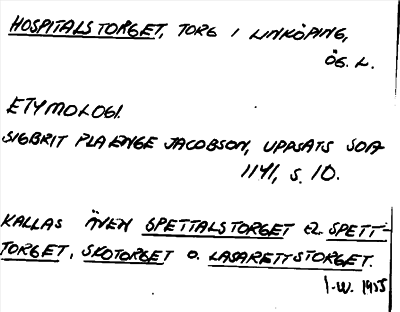 HOSPITALSTORGET, TORG I LINKÖPING,
ÖG. L.
ETYMOLOGI.
SIGBRIT PLAENGE JACOBSON, UPPSATS SOFA
1141, S. 10.
KALLAS ÄVEN SPETTALSTORGET EL. SPETT-
TORGET, SKOTORGET O. LASARETTSTORGET.
I.W. 1955